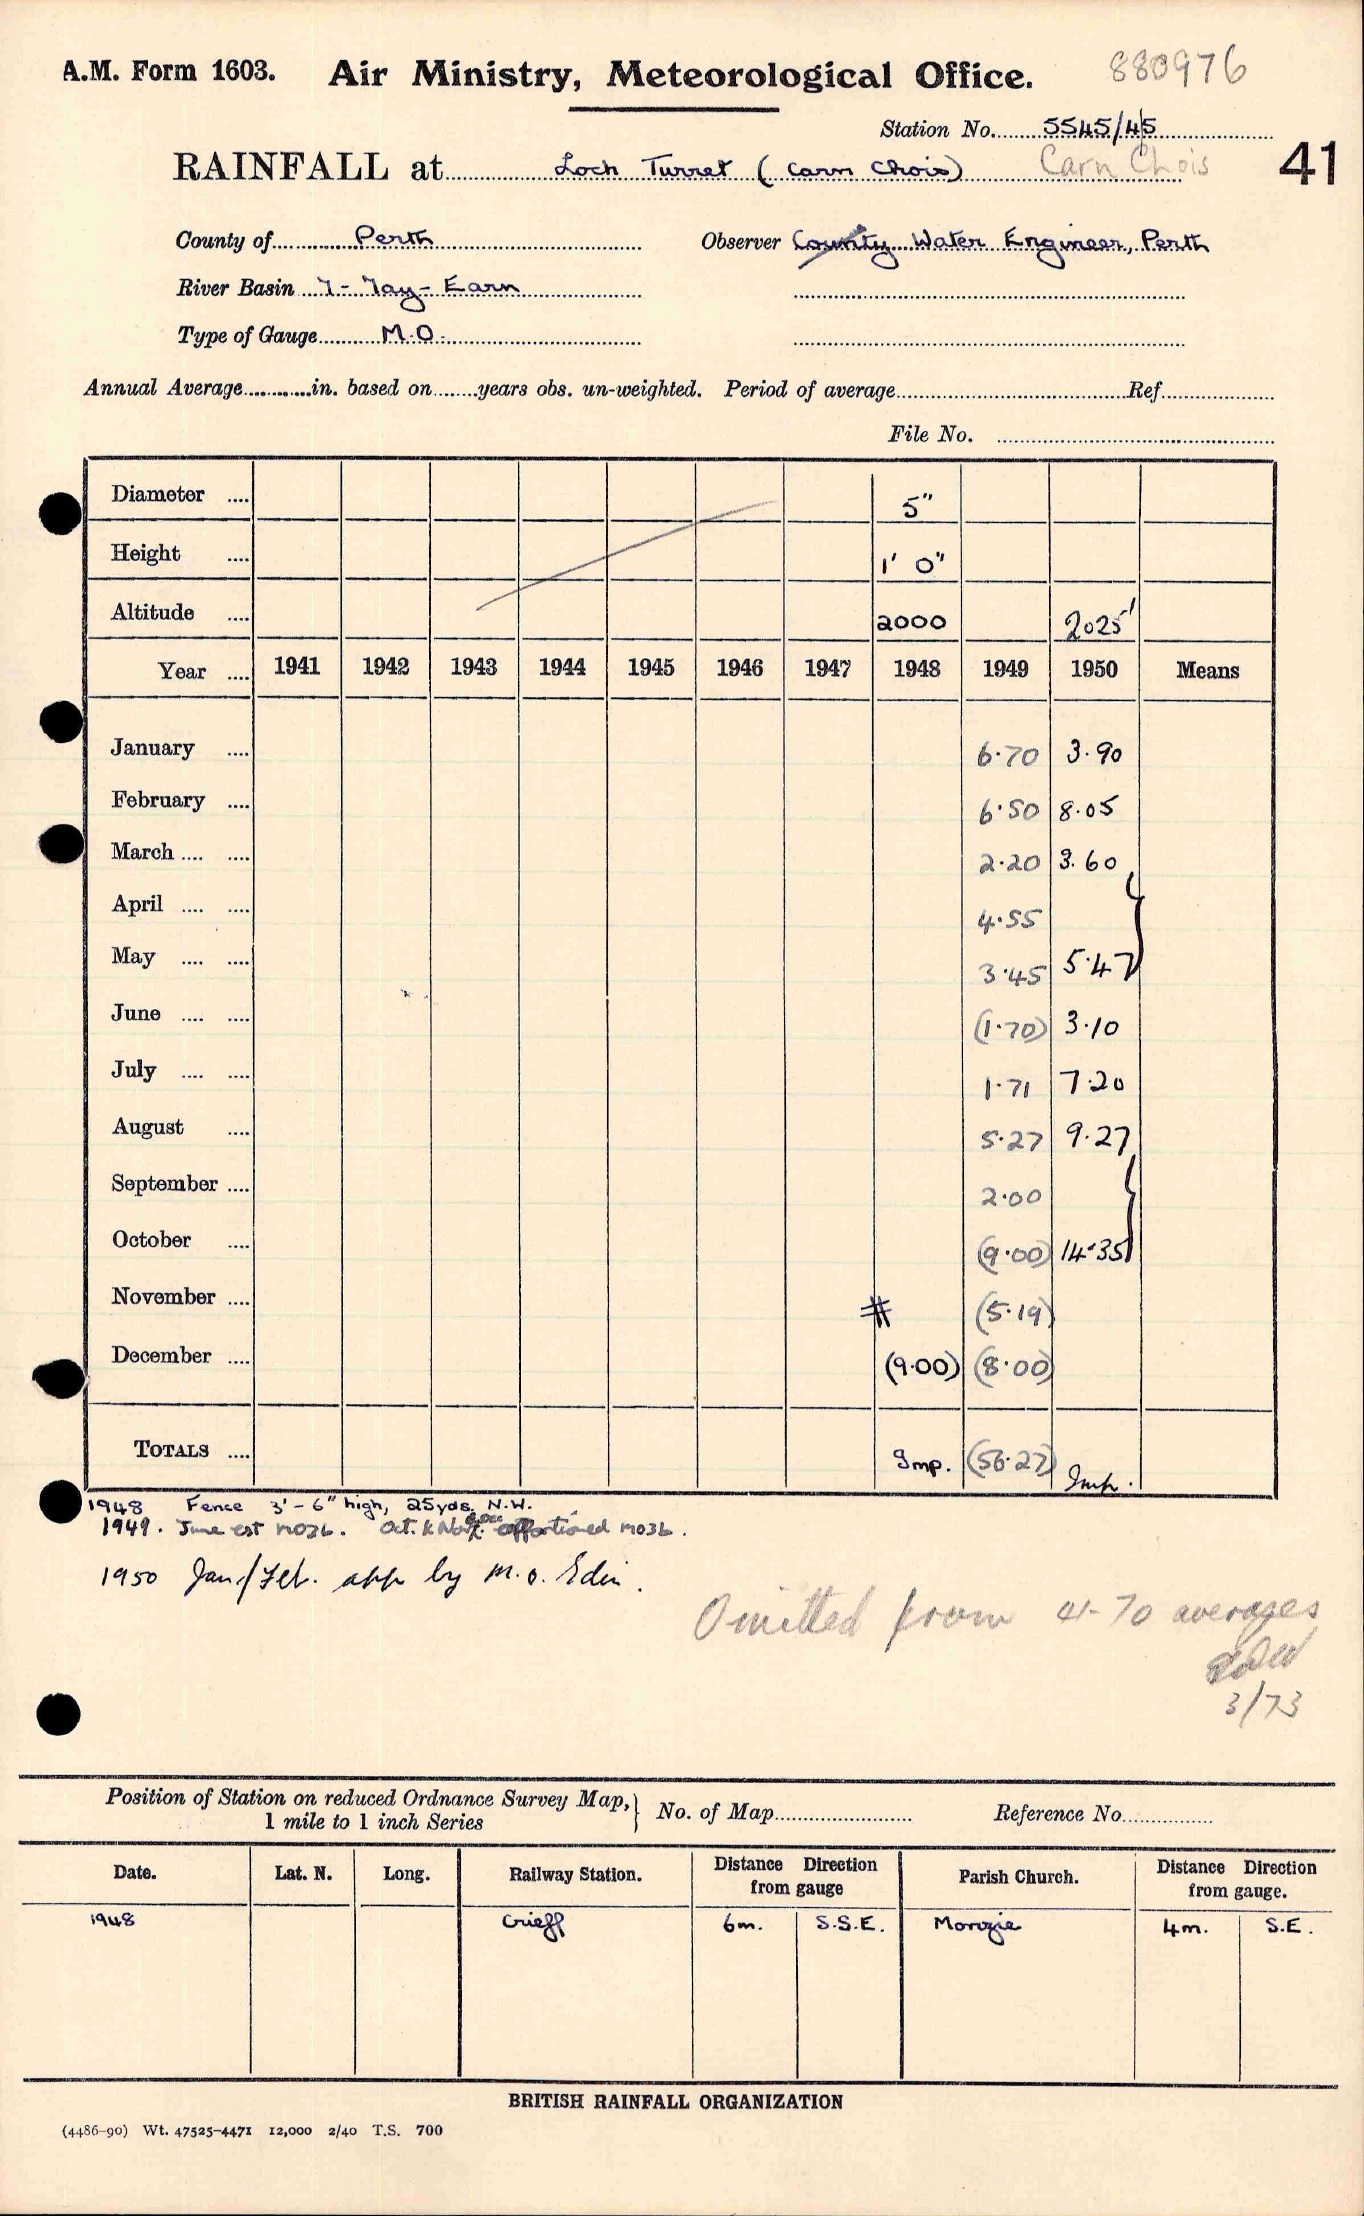 A.M. Form 1603. Air Ministry, Meteorological Office. 880976
Station No. 5545/45
RAINFALL at Loch Turret (Carn Chois) Carn Chois 41
County of Perth Observer County Water Engineer, Perth
River Basin 7-Tay-Earn
Type of Gauge M.O.
Annual Average in. based on years obs. un-weighted. Period of average Ref
File No.
Diameter 5"
Height 1' 0"
Altitude 2000 2025'
Year 1941 1942 1943 1944 1945 1946 1947 1948 1949 1950 Means
January 6.70 3.90
February 6.50 8.05
March 2.20 3.60
April 4.55
May 3.45 5.47
June (1.70) 3.10
July 1.71 7.20
August 5.27 9.27
September 2.00
October (9.00) 14.35
November # (5.19)
December (9.00) (8.00)
TOTALS Imp. (56.27) Imp.
1948 Fence 3'-6" high, 25yds. N.W.
1949. June est M03b. Oct. & Nov. & Dec apportioned M03b.
1950 Jan/Feb. app by M.O. Edin.
Omitted from 41-70 averages
3/73
Position of Station on reduced Ordnance Survey Map, } No. of Map Reference No.
1 mile to 1 inch Series
Date. Lat. N. Long. Railway Station. Distance Direction from gauge Parish Church. Distance Direction from gauge.
1948 Crieff 6m. S.S.E. Monzie 4m. S.E.
BRITISH RAINFALL ORGANIZATION
(4486-90) Wt. 47525-4471 12,000 2/40 T.S. 700